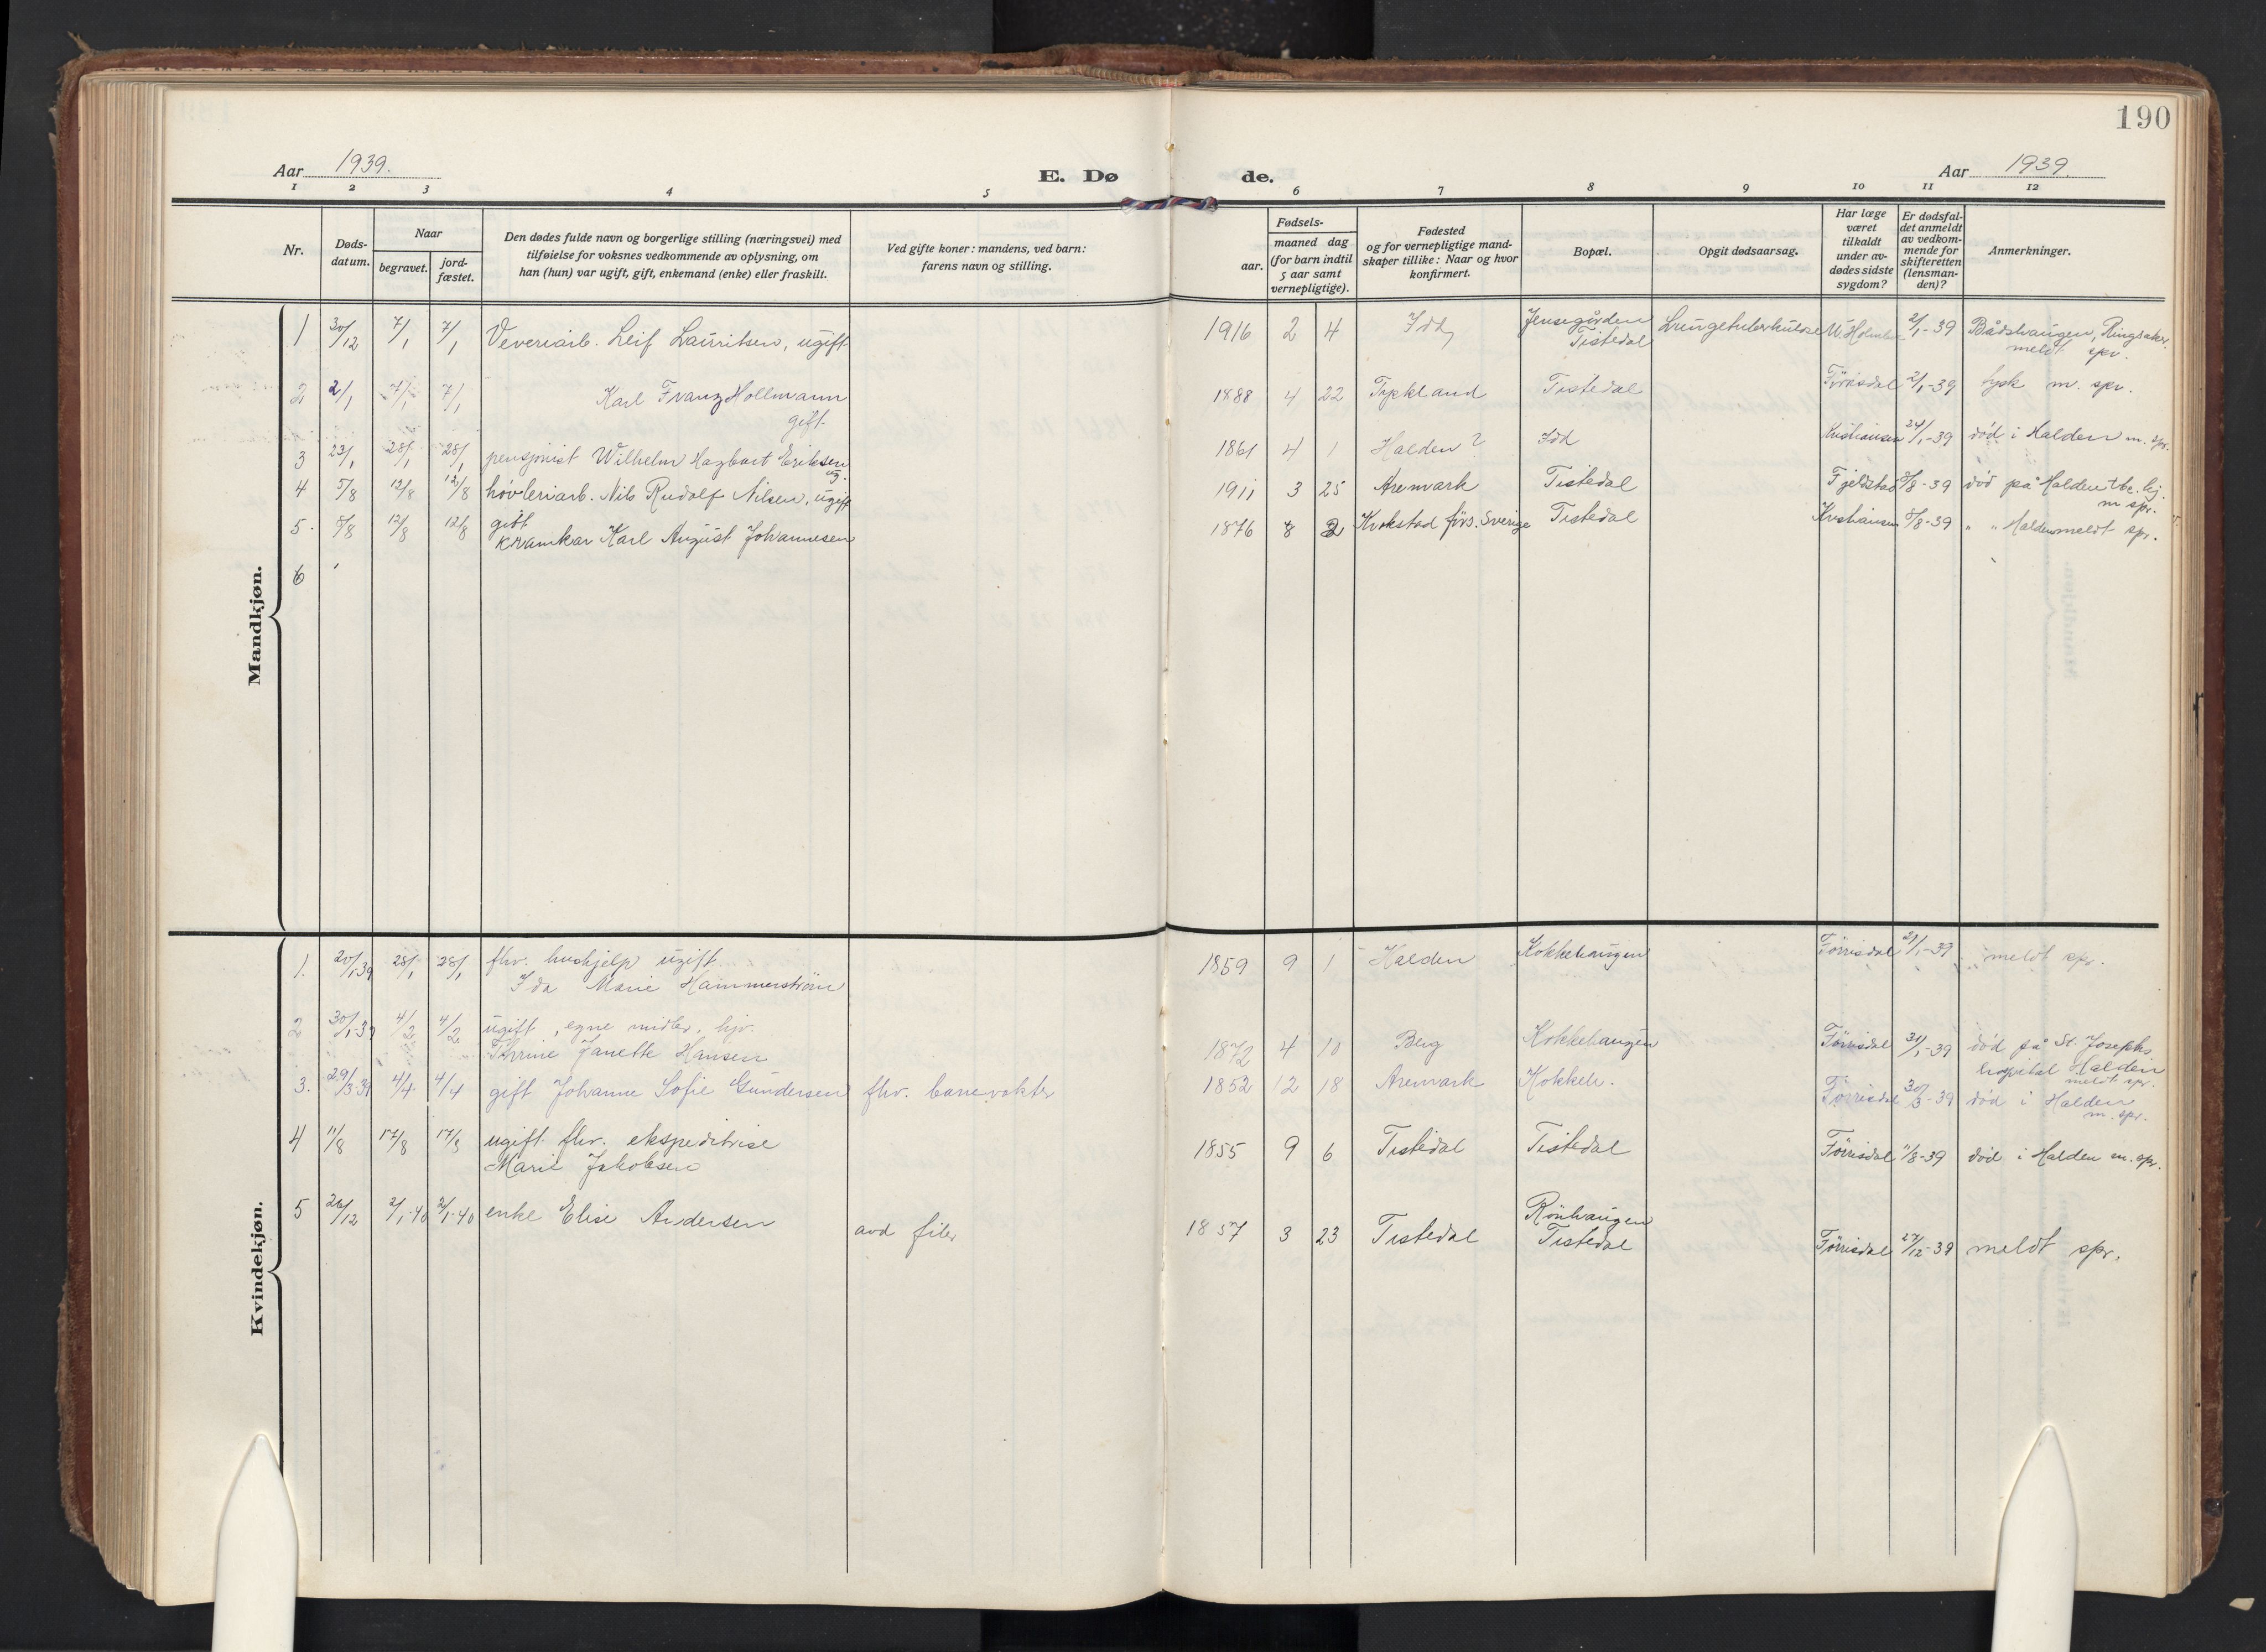 190
Aar 1939.
E. Dø
de.
Aar 1939.
1 2 3 4 5 6 7 8 9 10 11 12
Nr.
Døds-
datum.
Naar
begravet.
jord-
fæstet.
Den dødes fulde navn og borgerlige stilling (næringsvei) med
tilføielse for voksnes vedkommende av oplysning, om
han (hun) var ugift, gift, enkemand (enke) eller fraskilt.
Ved gifte koner: mandens, ved barn:
farens navn og stilling.
Fødsels-
aar.
maaned dag
(for barn indtil
5 aar samt
vernepligtige).
Fødested
og for vernepligtige mand-
skaper tillike: Naar og hvor
konfirmert.
Bopæl.
Opgit dødsaarsag.
Har læge
været
tilkaldt
under av-
dødes sidste
sygdom?
Er dødsfal-
det anmeldt
av vedkom-
mende for
skifteretten
(lensman-
den)?
Anmerkninger.
Mandkjøn.
1 30/12 7/1 7/1 Veveriarb. Leif Lauritsen, ugift 1916 2 4 Idd Jensegården
Tistedal Lungetuberkulose 2/1-39 Bådshaugen, Ringsaker.
meldt spr.
2 2/1 7/1 7/1 Karl Franz Hollmann
gift 1888 4 22 Tyskland Tistedal Förrisdal 2/1-39 tysk m. spr.
3 23/1 28/1 28/1 pensjonist Wilhelm Hagbart Eriksen
ug. 1861 4 1 Halden? Idd Kristiansen 24/1-39 död i Halden m. spr.
4 5/8 12/8 12/8 høvleriarb. Nils Rudolf Nilsen, ugift 1911 3 25 Aremark Tistedal Fjeldstad 5/8-39 död på Halden tbc. hj.
m spr.
5. 8/8 12/8 12/8 gift
Kramkar Karl August Johannesen 1876 8 2 Krokstad förs. Sverige Tistedal Kristiansen 8/8-39 " " Halden meldt spr.
6
Kvindekjøn.
1. 20/1-39 28/1 28/1 fhv. hushjelp ugift
Ida Marie Hammerström 1859 9 1 Halden Kokkehaugen Förrisdal 21/1-39 meldt spr.
2 30/1-39 4/2 4/2 ugift, egne midler, hjv.
Thrine Janette Hansen 1872 4 10 Berg Kokkehaugen Förrisdal 31/1-39 död på St. Josephs
hospital Halden
meldt spr.
3. 29/3-39 4/4 4/4 gift Johanne Sofie Gundersen fhv. banevokter 1852 12 18 Aremark Kokkeh. Förrisdal 30/3-39 död i Halden
m. spr.
4 11/8 17/8 17/8 ugift fhv. ekspeditrise
Marie Jakobsen 1855 9 6 Tistedal Tistedal Förrisdal 11/8-39 död i Halden m. spr.
5 26/12 2/1-40 2/1-40 enke Elise Andersen avd filer 1857 3 23 Tistedal Rönhaugen
Tistedal Förrisdal 27/12-39 meldt spr.